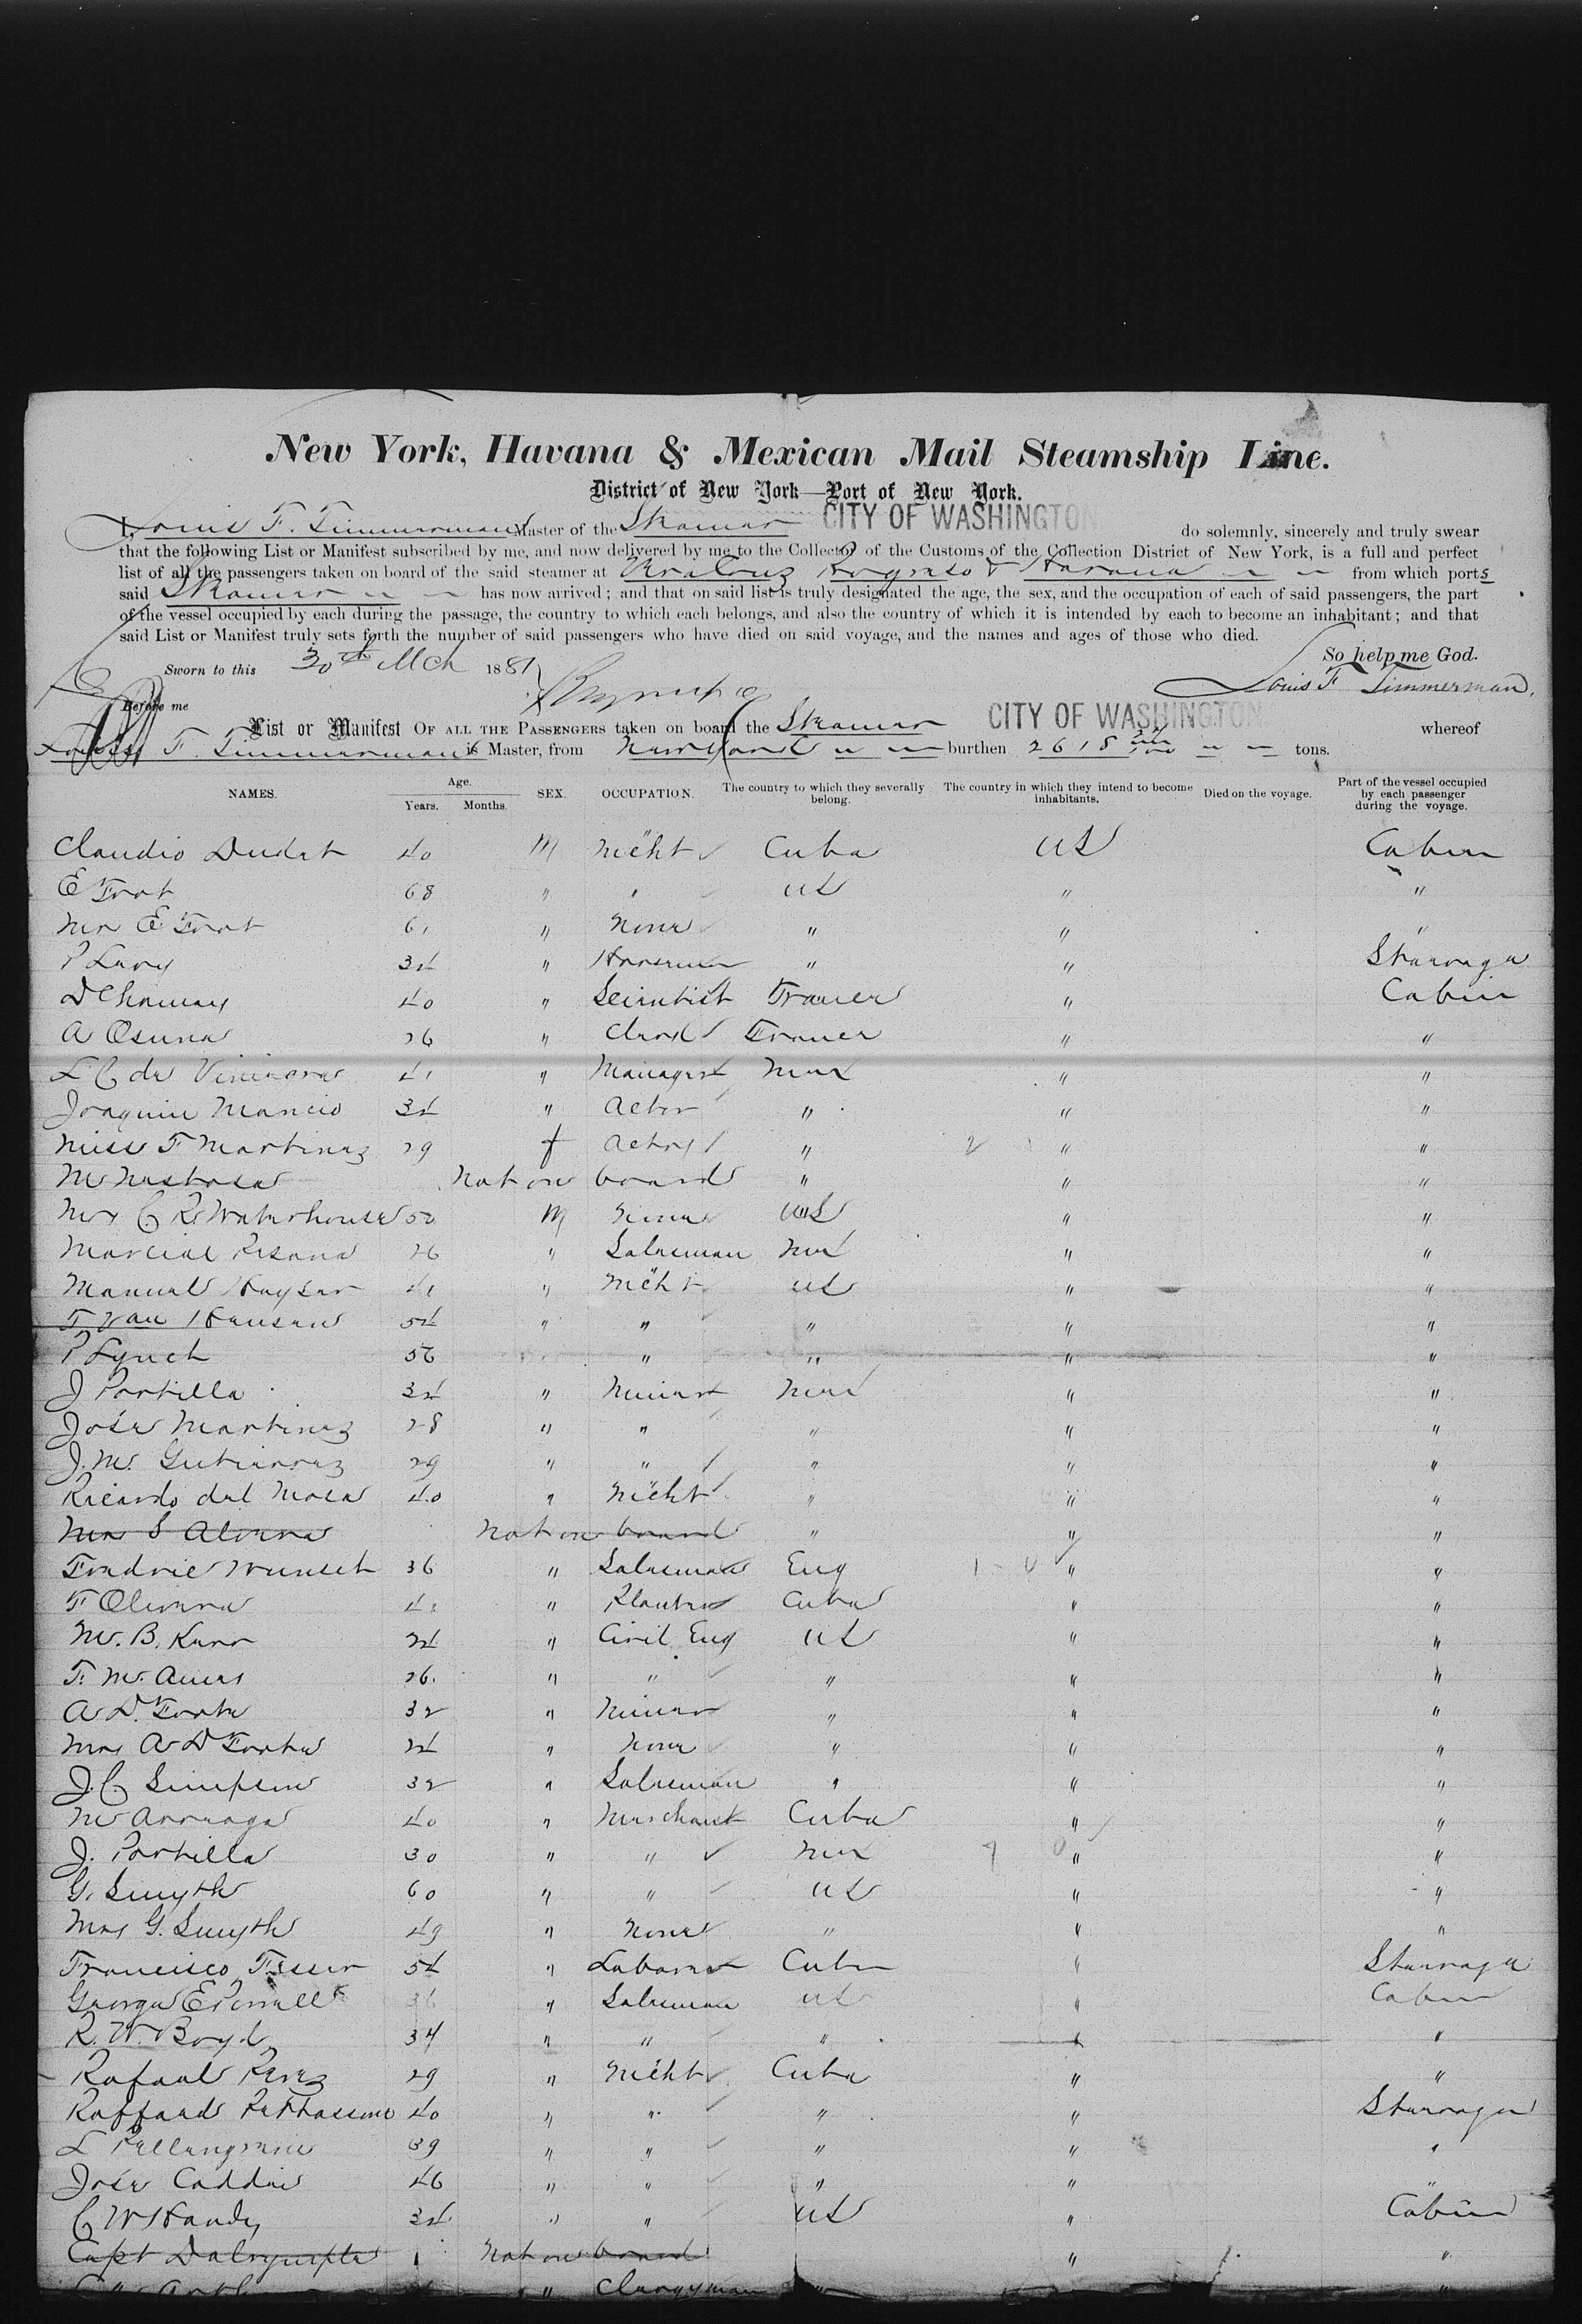 New York, Havana & Mexican Mail Steamship Line.
District of New York—Port of New York.
I, Louis F. Timmerman Master of the Steamer CITY OF WASHINGTON do solemnly, sincerely and truly swear
that the following List or Manifest subscribed by me, and now delivered by me to the Collector of the Customs of the Collection District of New York, is a full and perfect
list of all the passengers taken on board of the said steamer at Vera Cruz Progreso & Havana from which ports
said Steamer has now arrived; and that on said list is truly designated the age, the sex, and the occupation of each of said passengers, the part
of the vessel occupied by each during the passage, the country to which each belongs, and also the country of which it is intended by each to become an inhabitant; and that
said List or Manifest truly sets forth the number of said passengers who have died on said voyage, and the names and ages of those who died.
So help me God.
Sworn to this 30th Mch 1881
Louis F Timmerman.
Before me
List or Manifest OF ALL THE PASSENGERS taken on board the Steamer CITY OF WASHINGTON whereof
Louis F. Timmerman is Master, from burthen 2618 tons.
NAMES. Age. Years. Months. SEX. OCCUPATION. The country to which they severally belong. The country in which they intend to become inhabitants. Died on the voyage. Part of the vessel occupied by each passenger during the voyage.
Claudio 40 M Mcht Cuba US Cabin
E Foot 68 " " US " "
Mrs E Foot 61 " None " " "
P Levy 34 " " " Steerage
D Charnay 40 " Scientist France " Cabin
A Osuna 26 " Clerk France " "
L C de 41 " Manager Mex " "
Joaquin Mancio 34 " Actor " " "
Miss F Martinez 29 f Actress " " "
M not on board " " "
Mrs C R Waterhouse 50 M None US " "
Marcial 26 " Salesman Mex " "
Manuel Kayser 41 " Mcht US " "
F Van Hansen 54 " " " " "
P Lynch 56 " " " "
J Portilla 34 " Miner Mex " "
Jose Martinez 28 " " " " "
J. M. Gutierrez 29 " " " " "
Ricardo del 40 " Mcht " " "
Mrs S not on board " " "
Fredric Wunsch 36 " Salesman Eng " "
F Olivera " Planter Cuba " "
M. B. Kerr 24 " Civil Eng US " "
F. M. Ames 26 " " " " "
A D. Foote 32 " Miner " " "
Mrs A D Foote 24 " None " " "
J. C. Simpson 32 " Salesman " " "
M Arruaga 40 " Merchant Cuba " "
J. Portilla 30 " " Mex " "
G. Smyth 60 " " US " "
Mrs G. Smyth 49 " None " " "
Francisco 54 " Laborer Cuba " Steerage
George E 36 " Salesman US " Cabin
R. W. Boyd 34 " " " " "
Rafael Perez 29 " Mcht Cuba " "
40 " " " " Steerage
L 39 " " " " "
Jose 46 " " " " "
C W Handy 34 " " US " Cabin
Capt not on board " "
" Clergyman " "